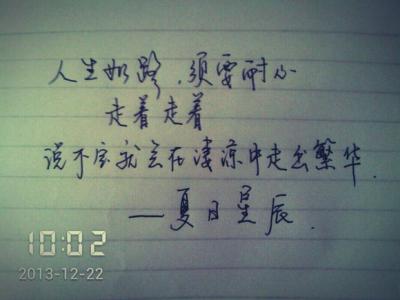 人生如路，须要耐心
走着走着
说不定就会在凄凉中走出繁华.
—夏日星辰.
10:02
2013-12-22